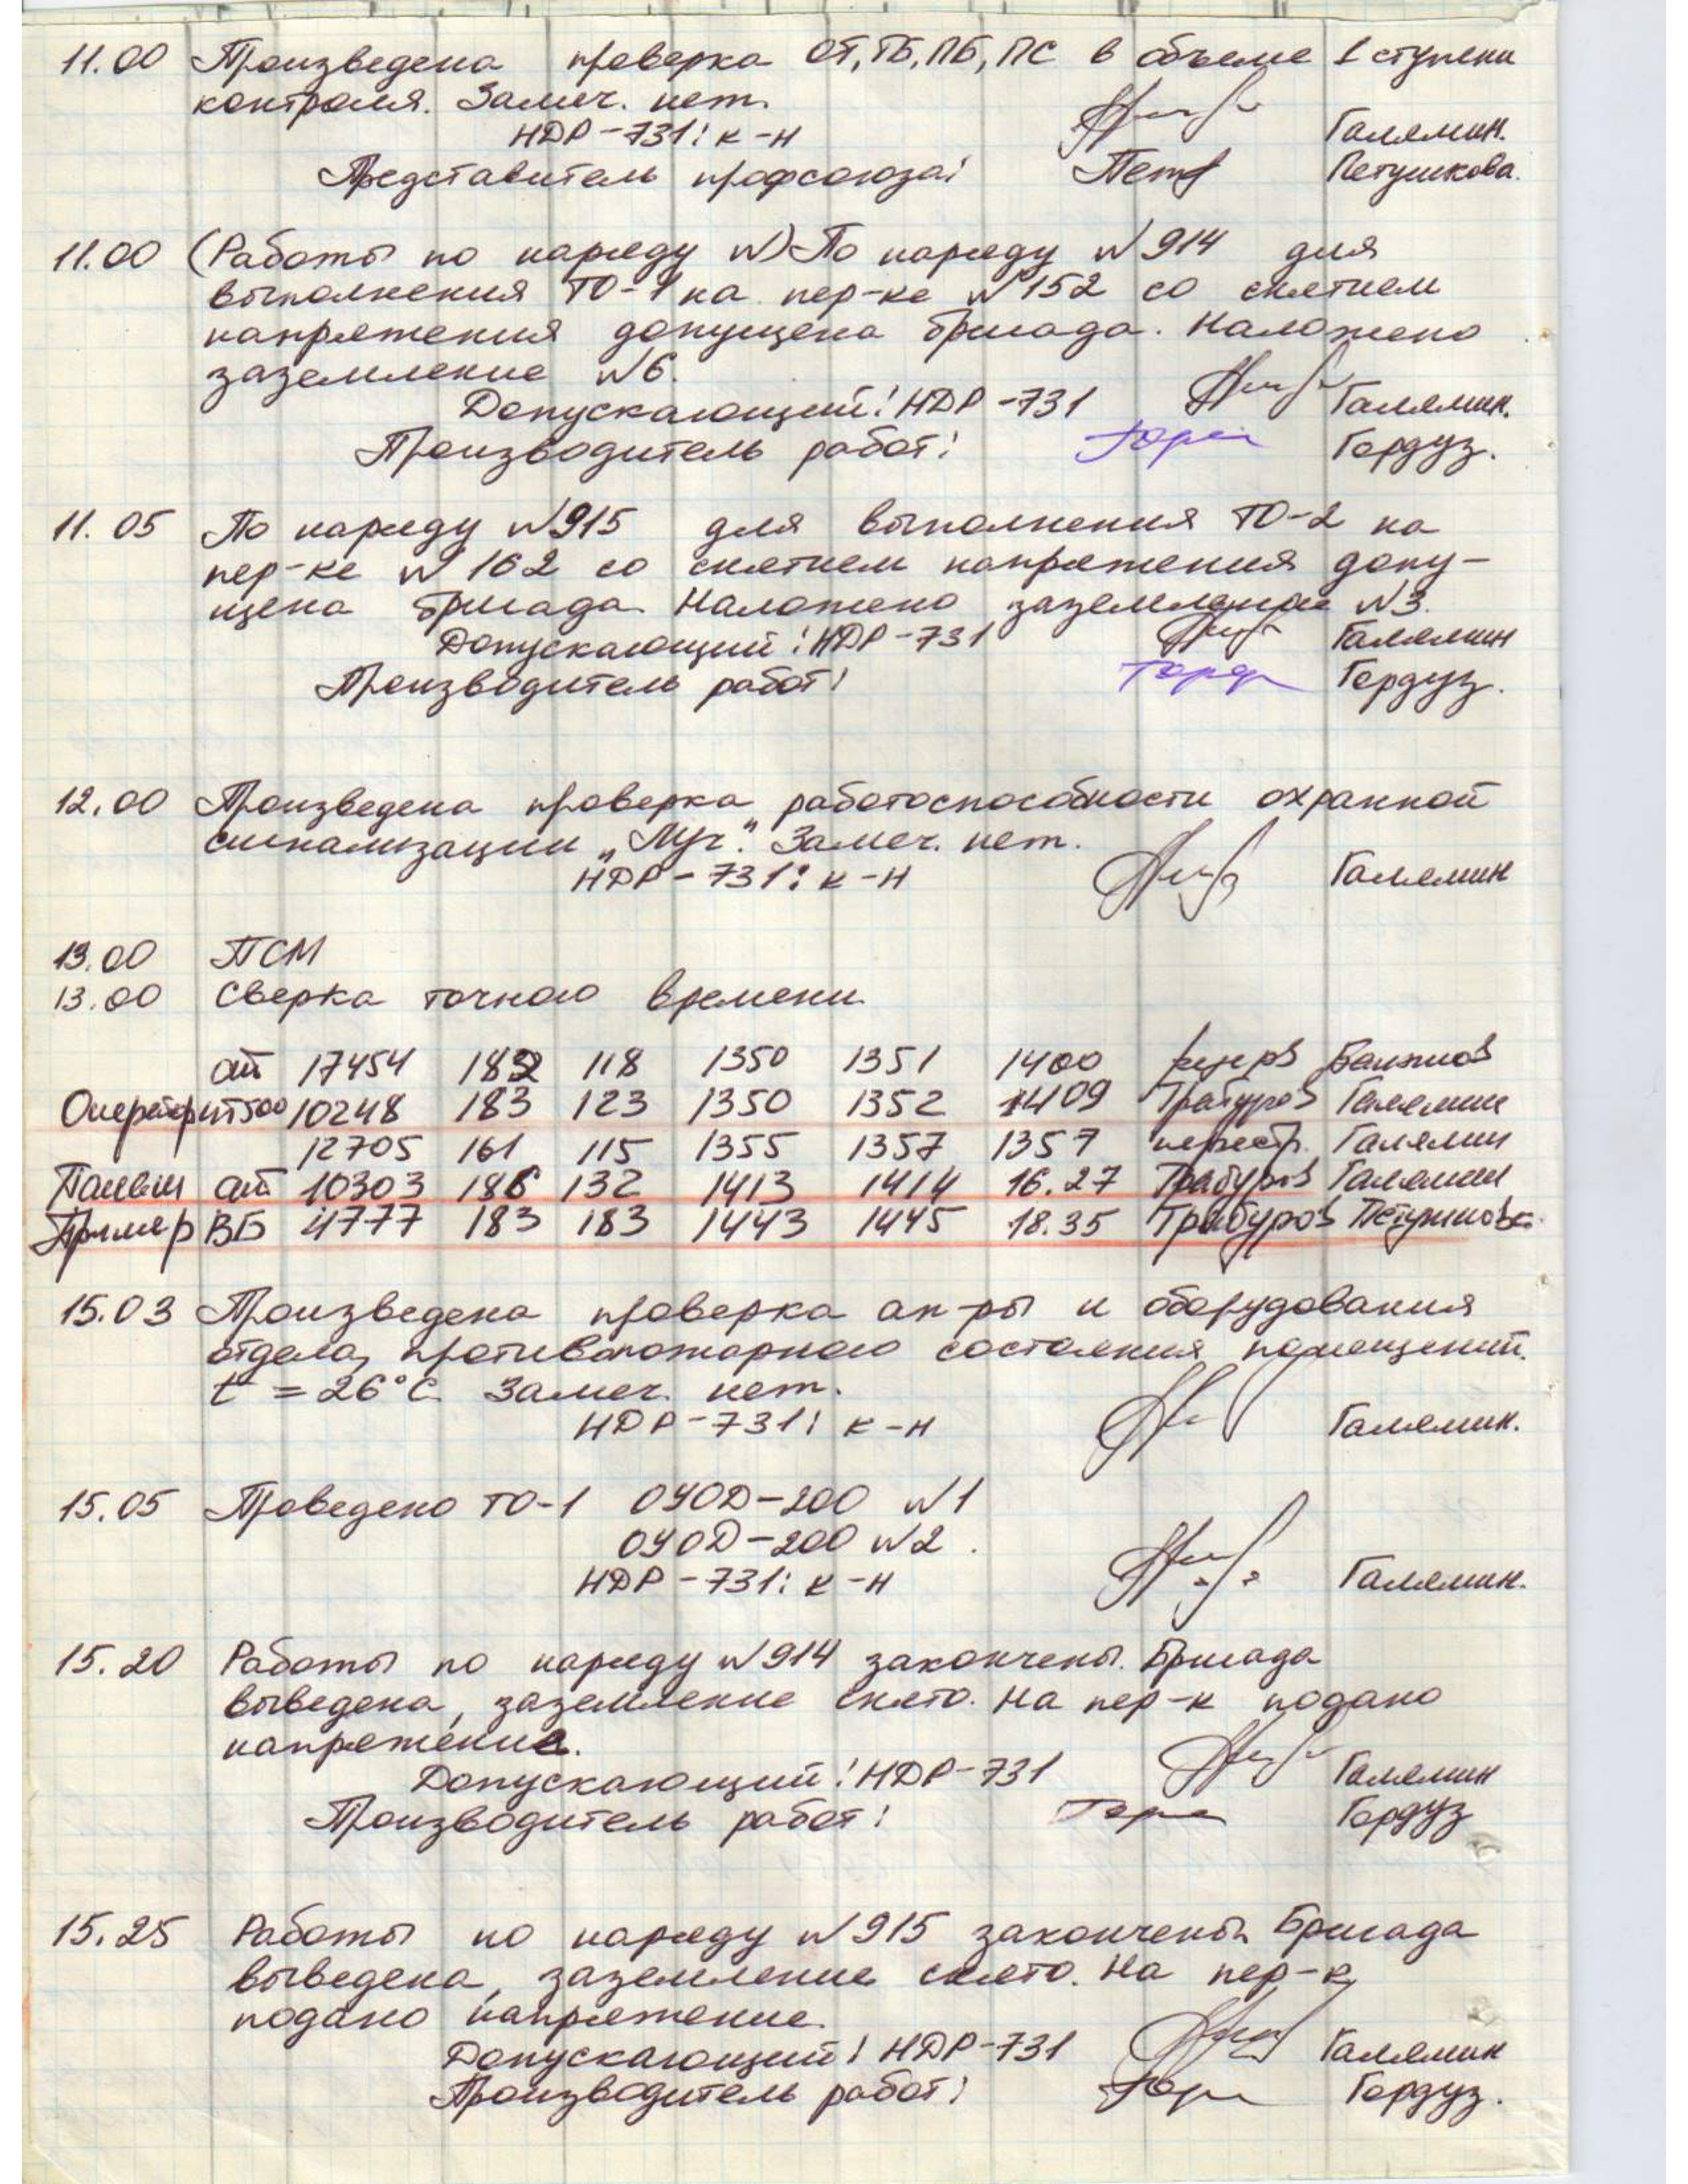 11.00 Произведена проверка ОТ, ТБ, ПБ, ПС в объеме 1 ступени
контроля. Замеч. нет.
НДР-731: к-н Галямин.
Представитель профсоюза: Петушкова.
11.00 (Работы по наряду №) По наряду №914 для
выполнения ТО-1 на пер-ке №152 со снятием
напряжения допущена бригада. Наложено
заземление №6.
Допускающий: НДР-731 Галямин.
Производитель работ: Гордуз.
11.05 По наряду №915 для выполнения ТО-2 на
пер-ке №162 со снятием напряжения допу-
щена бригада. Наложено заземление №3.
Допускающий: НДР-731 Галямин
Производитель работ: Гордуз.
12.00 Произведена проверка работоспособности охранной
сигнализации „Луч". Замеч. нет.
НДР-731: к-н Галямин
13.00 ПСМ
13.00 Сверка точного времени.
ат 17454 182 118 1350 1351 1400
10248 183 123 1350 1352 1409 Трабуров Галямин
12705 161 115 1355 1357 1357 Галямин
ат 10303 186 132 1413 1414 16.27 Трабуров Галямин
Пример ВБ 4777 183 183 1443 1445 18.35 Трабуров
15.03 Произведена проверка ап-ры и оборудования
отдела, противопожарного состояния помещений.
t = 26°C. Замеч. нет.
НДР-731: к-н Галямин.
15.05 Проведено ТО-1 ОУОД-200 №1
ОУОД-200 №2.
НДР-731: к-н Галямин.
15.20 Работы по наряду №914 закончены. Бригада
выведена, заземление снято. На пер-к подано
напряжение.
Допускающий: НДР-731 Галямин
Производитель работ: Гордуз
15.25 Работы по наряду №915 закончены. Бригада
выведена, заземление снято. На пер-к
подано напряжение.
Допускающий: НДР-731 Галямин
Производитель работ: Гордуз.